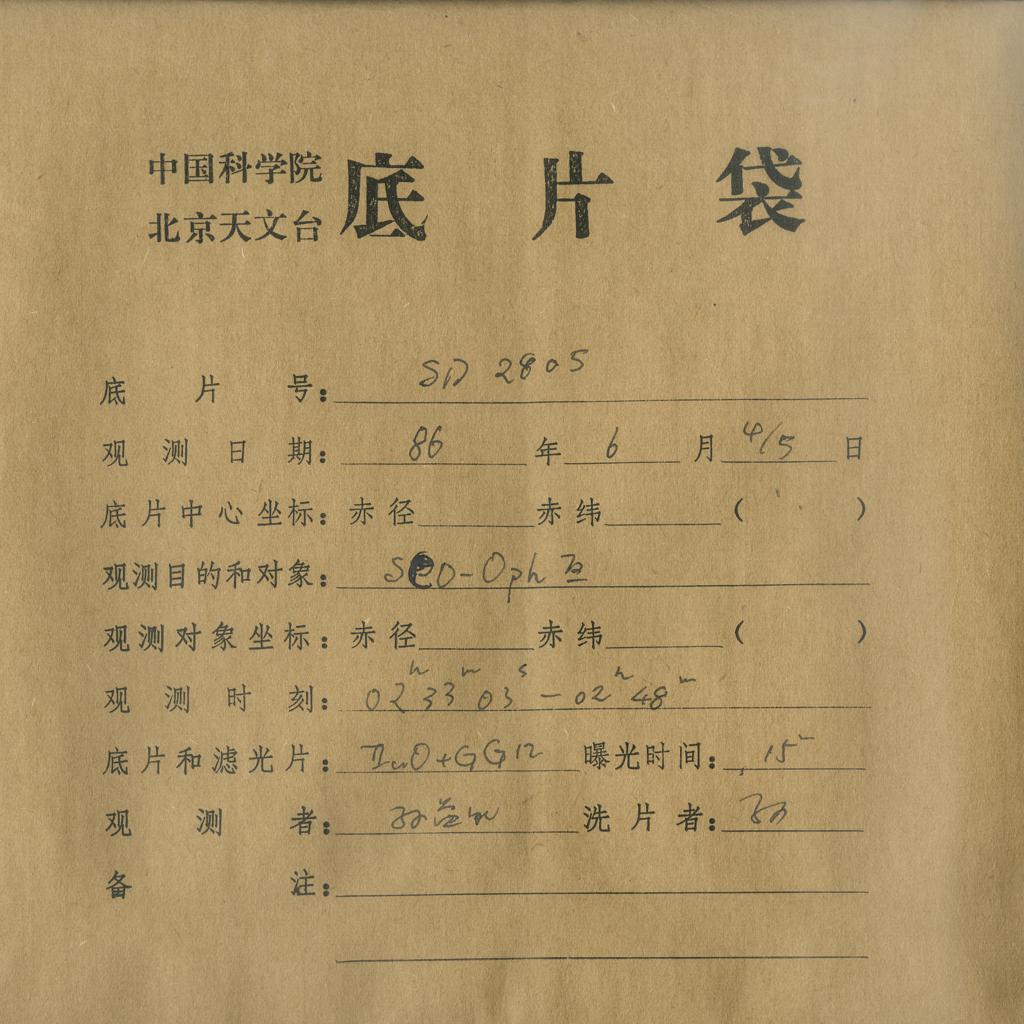 中国科学院
北京天文台
底片袋
底片号: SD 2805
观测日期: 86年6月4/5日
底片中心坐标: 赤径 赤纬 ( )
观测目的和对象: Sco-Oph
观测对象坐标: 赤径 赤纬 ( )
观测时刻: 02ʰ33ᵐ03ˢ - 02ʰ48ᵐ
底片和滤光片: IIaO+GG12 曝光时间: 15ᵐ
观测者: 孙 洗片者: 孙
备注: